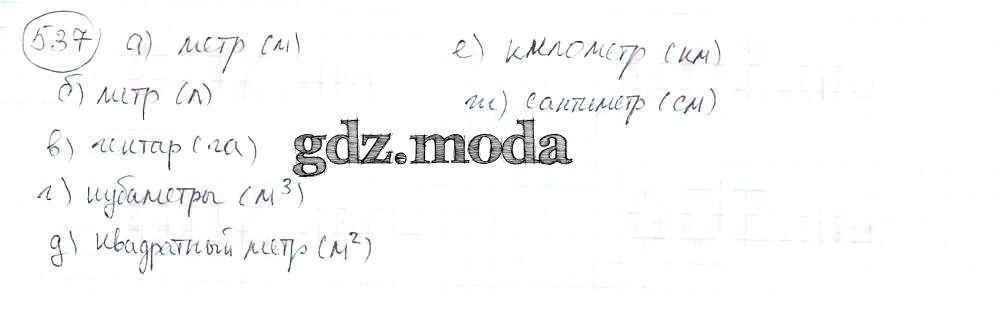 537 а) метр (м)
б) метр (л)
в) гектар (га)
г) кубаметры (м³)
д) квадратный метр (м²)
е) километр (км)
ж) сантиметр (см)
gdz.moda